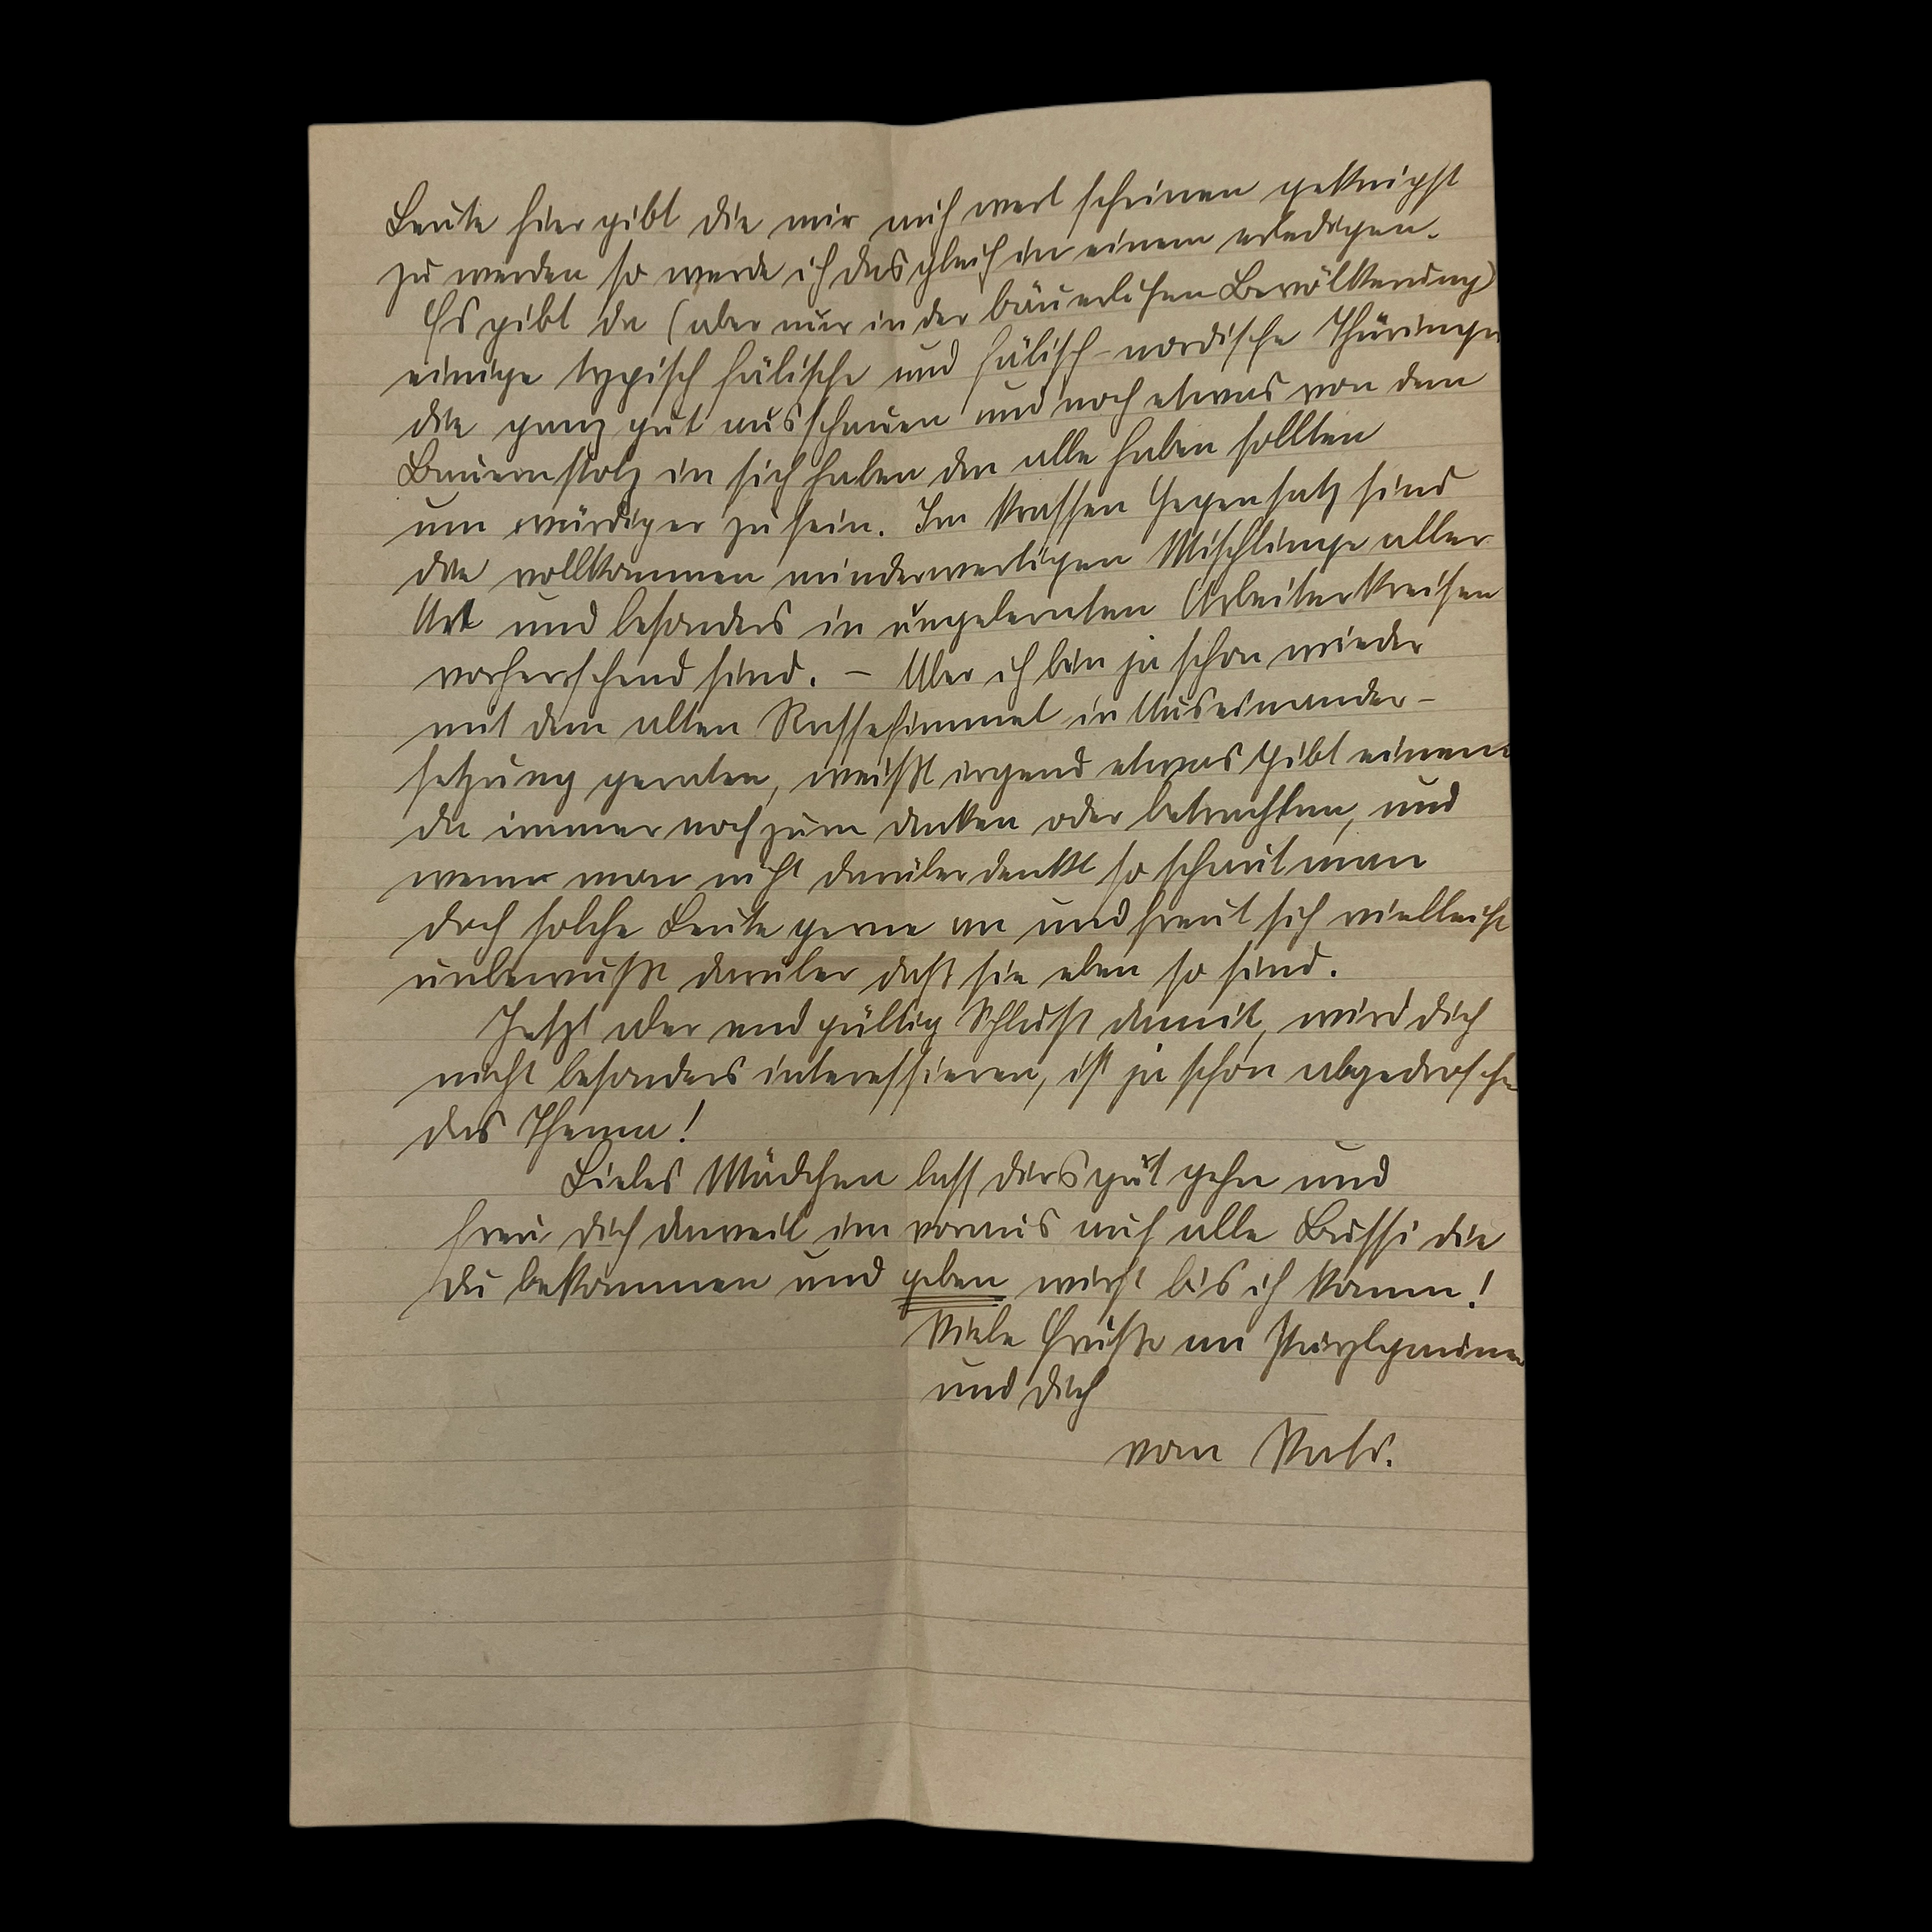 Leute hier gibt die mir auch wert scheinen geknipst
zu werden so werde ich das gleich in einem erledigen.
Es gibt da (aber nur in der bäuerlichen Bevölkerung)
einige typisch fälische und fälisch-nordische Thüringer
die ganz gut ausschauen und noch etwas von dem
Bauernstolz in sich haben den alle haben sollten
um würdiger zu sein. Im krassen Gegensatz sind
die vollkommen minderwertigen Mischlinge aller
Art und besonders in ungelernten Arbeiterkreisen
vorherrschend sind. – Aber ich bin ja schon wieder
mit dem alten Rassefimmel in Auseinander-
setzung geraten, weißt irgend etwas gibt einem
da immer noch zum denken oder betrachten, und
wenn man nicht darüber denkt so schaut man
doch solche Leute gerne an und freut sich vielleicht
unbewußt darüber daß sie eben so sind.
Jetzt aber endgültig Schluß damit, wird dich
nicht besonders interessieren, ist ja schon abgedroschen
das Thema!
Liebes Mädchen lass dirs gut gehn und
freu dich derweil im voraus auf alle Bussi die
du bekommen und geben wirst bis ich komm!
Viele Grüße an
und dich
vom